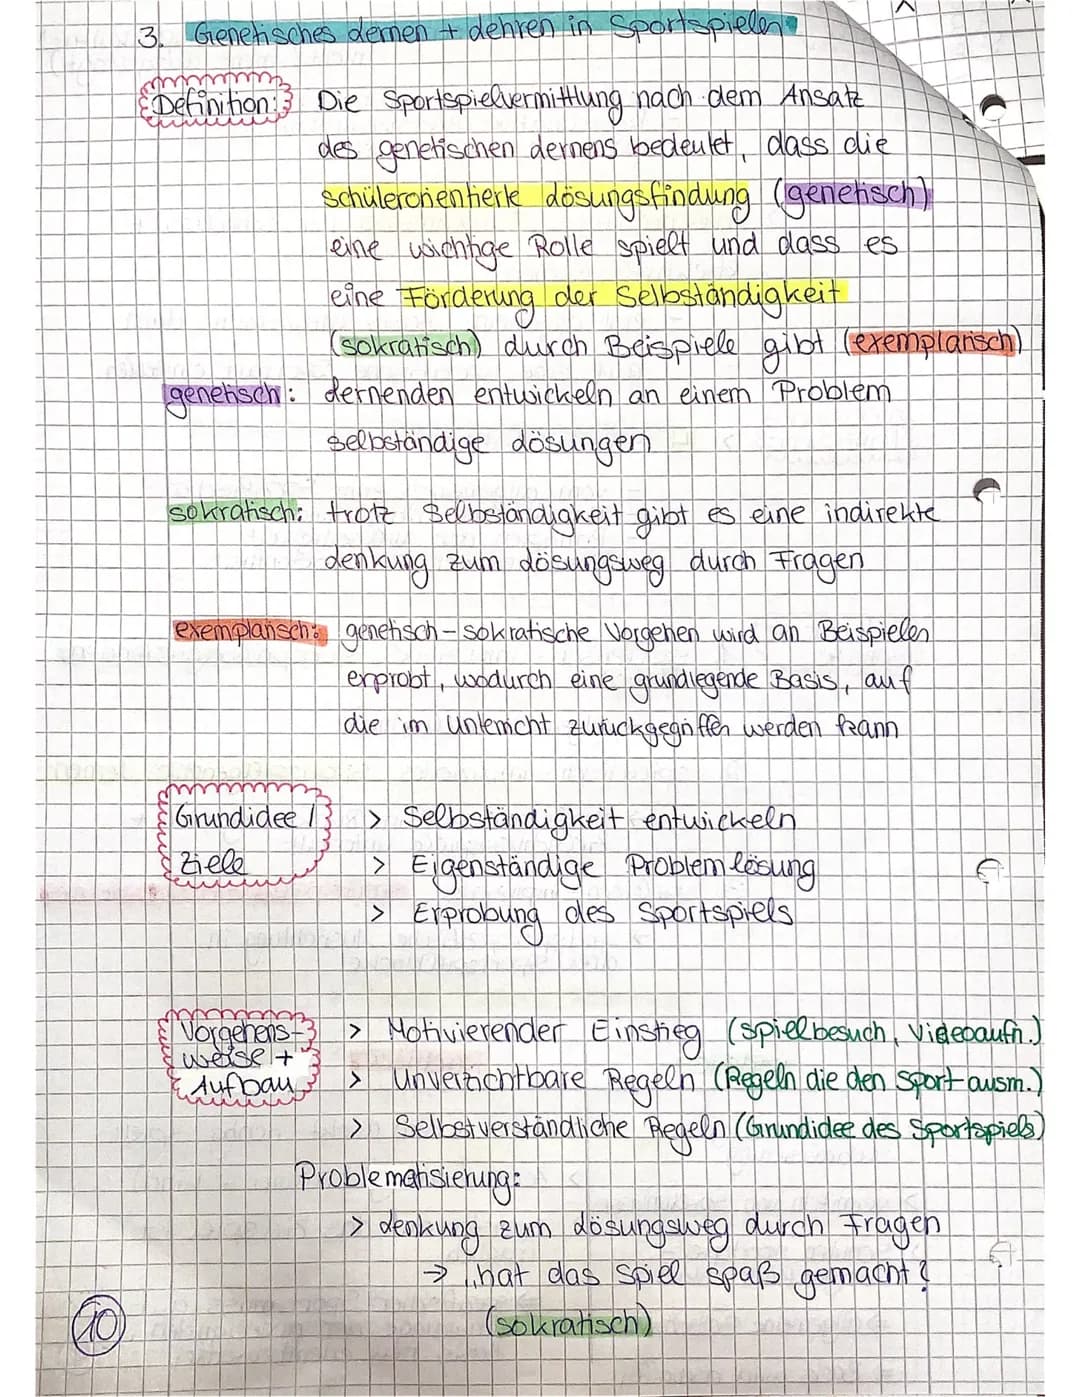 3. Genetisches Lernen + Lehren in Sportspielen
Definition: Die Sportspielvermittlung nach dem Ansatz
des genetischen Lernens bedeutet, dass die
schülerorientierte Lösungsfindung (genetisch)
eine wichtige Rolle spielt und dass es
eine Förderung der Selbständigkeit
(sokratisch) durch Beispiele gibt (exemplarisch)
genetisch: Lernenden entwickeln an einem Problem
selbständige Lösungen
sokratisch: trotz Selbständigkeit gibt es eine indirekte
Lenkung zum Lösungsweg durch Fragen
exemplarisch: genetisch-sokratische Vorgehen wird an Beispielen
erprobt, wodurch eine grundlegende Basis, auf
die im Unterricht zurückgegriffen werden kann
Grundidee / > Selbständigkeit entwickeln
Ziele > Eigenständige Problemlösung
> Erprobung des Sportspiels
Vorgehens- > Motivierender Einstieg (Spielbesuch, Videoaufn.)
weise +
Aufbau > Unverzichtbare Regeln (Regeln die den Sport ausm.)
> Selbstverständliche Regeln (Grundidee des Sportspiels)
Problematisierung:
> Lenkung zum Lösungsweg durch Fragen
→ „hat das Spiel spaß gemacht?
(sokratisch)
10